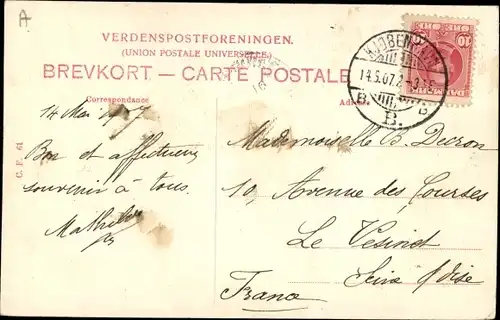 A
VERDENSPOSTFORENINGEN.
(UNION POSTALE UNIVERSELLE.)
BREVKORT — CARTE POSTALE
Correspondance
10 ØRE 10
KJØBENHAVN
14.5.07.2
B. B.
B.
14 Mai 1907
Bon et affectueux
souvenir à tous.
Mademoiselle B.
10, Avenue des Courses
Le Vésinet
Seine & Oise
France
C. F. 61